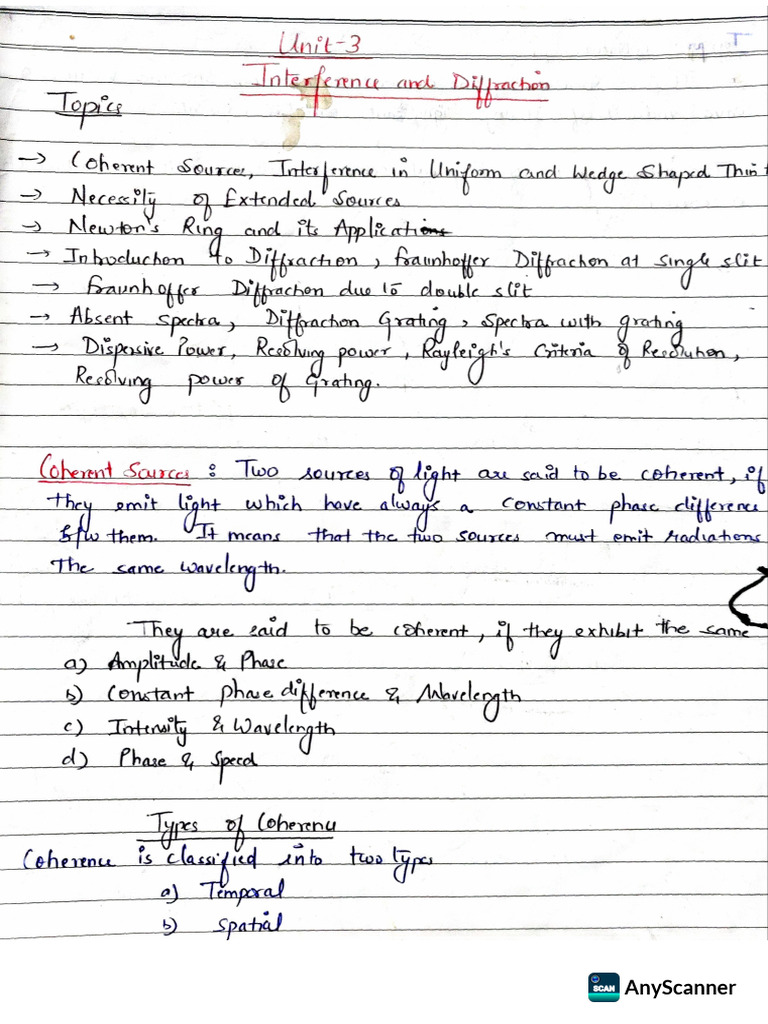 Unit-3
Interference and Diffraction
Topics
→ Coherent Sources, Interference in Uniform and Wedge Shaped Thin
→ Necessily of Extended Sources
→ Newton's Ring and its Applications
→ Introduction to Diffraction, fraunhoffer Diffraction at single slit
→ fraunhoffer Diffraction due to double slit
→ Absent spectra, Diffraction Grating, Spectra with grating
→ Dispersive Power, Resolving power, Rayleigh's Criteria of Resolution,
Resolving power of Grating.
Coherent Sources : Two sources of light are said to be coherent, if
they emit light which have always a constant phase difference
b/w them. It means that the two sources must emit radiations
The same wavelength.
They are said to be coherent, if they exhibit the same
a) Amplitude & Phase
b) Constant phase difference & Wavelength
c) Intensity & Wavelength
d) Phase & Speed
Types of Coherence
Coherence is classified into two types
a) Temporal
b) Spatial
SCAN AnyScanner